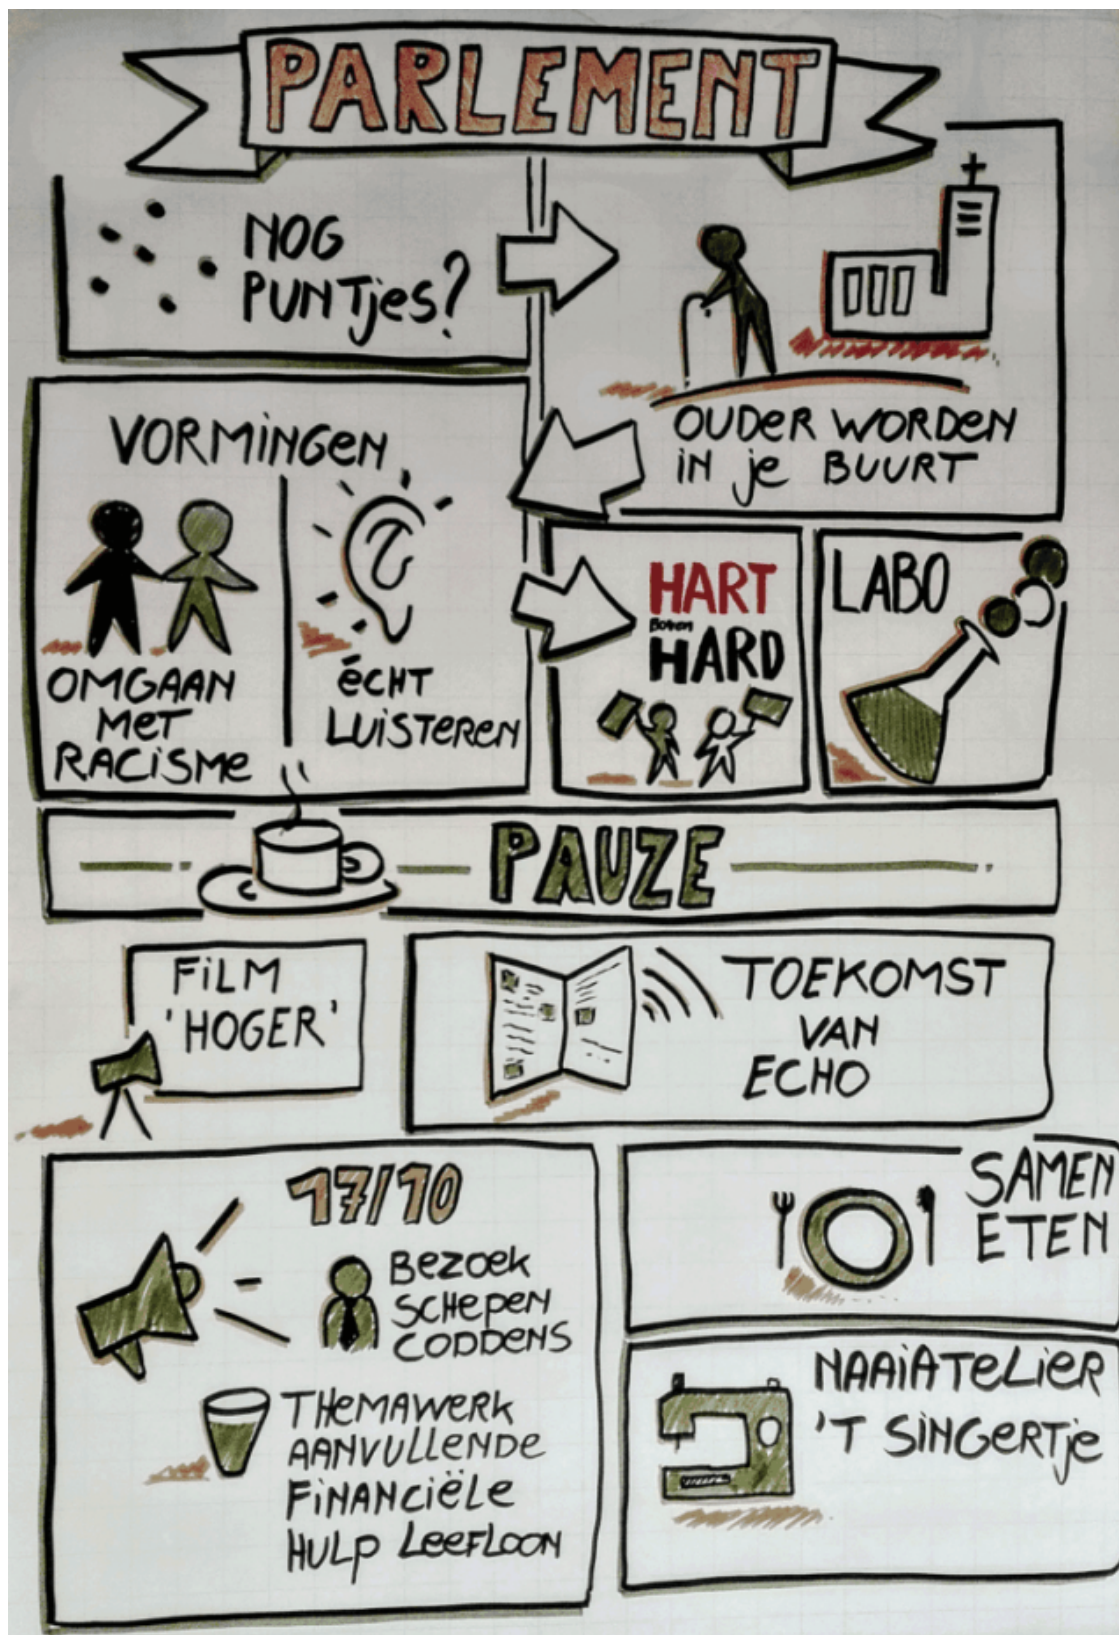 PARLEMENT
NOG
PUNTjes?
OUDER WORDEN
IN je BUURT
VORMINGEN
OMGAAN
MET
RACISME
éCHT
LUISTEREN
HART
BOVEN
HARD
LABO
PAUZE
FILM
'HOGER'
TOEKOMST
VAN
ECHO
17/10
BEZOEK
SCHEPEN
CODDENS
THEMAWERK
AANVULLENDE
FINANCIËLE
HULP LEEFLOON
SAMEN
ETEN
NAAIATELIER
'T SINGERTje